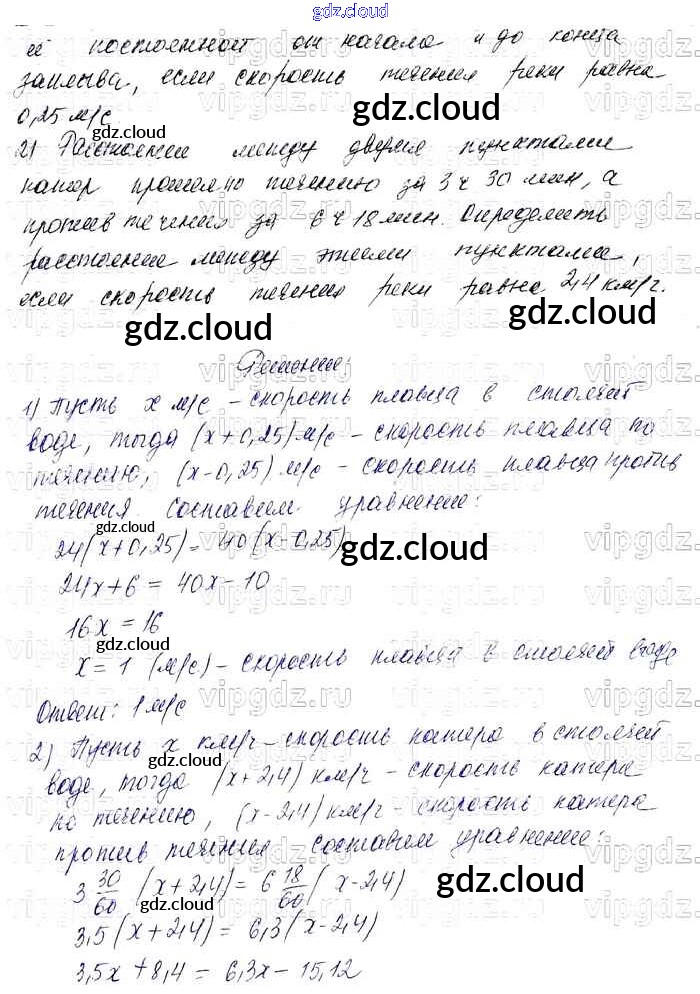 gdz.cloud
её постоянной от начала и до конца
заплыва, если скорость течения реки равна
0,25 м/с
gdz.cloud
gdz.cloud
2) Расстояние между двумя пунктами
катер прошел по течению за 3 ч 30 мин, а
против течения за 6 ч 18 мин. Определить
расстояние между этими пунктами,
если скорость течения реки равна 2,4 км/ч.
gdz.cloud
gdz.cloud
Решение:
1) Пусть x м/с - скорость пловца в стоячей
воде, тогда (x+0,25) м/с - скорость пловца по
течению, (x-0,25) м/с - скорость пловца против
течения. Составим уравнение:
gdz.cloud
24(x+0,25) = 40(x-0,25)
gdz.cloud
24x+6 = 40x-10
16x = 16
gdz.cloud
x = 1 (м/с) - скорость пловца в стоячей воде
Ответ: 1 м/с
2) Пусть x км/ч - скорость катера в стоячей
gdz.cloud
воде, тогда (x+2,4) км/ч - скорость катера
по течению, (x-2,4) км/ч - скорость катера
против течения. Составим уравнение:
3 30/60 (x+2,4) = 6 18/60 (x-2,4)
gdz.cloud
gdz.cloud
3,5(x+2,4) = 6,3(x-2,4)
3,5x+8,4 = 6,3x-15,12